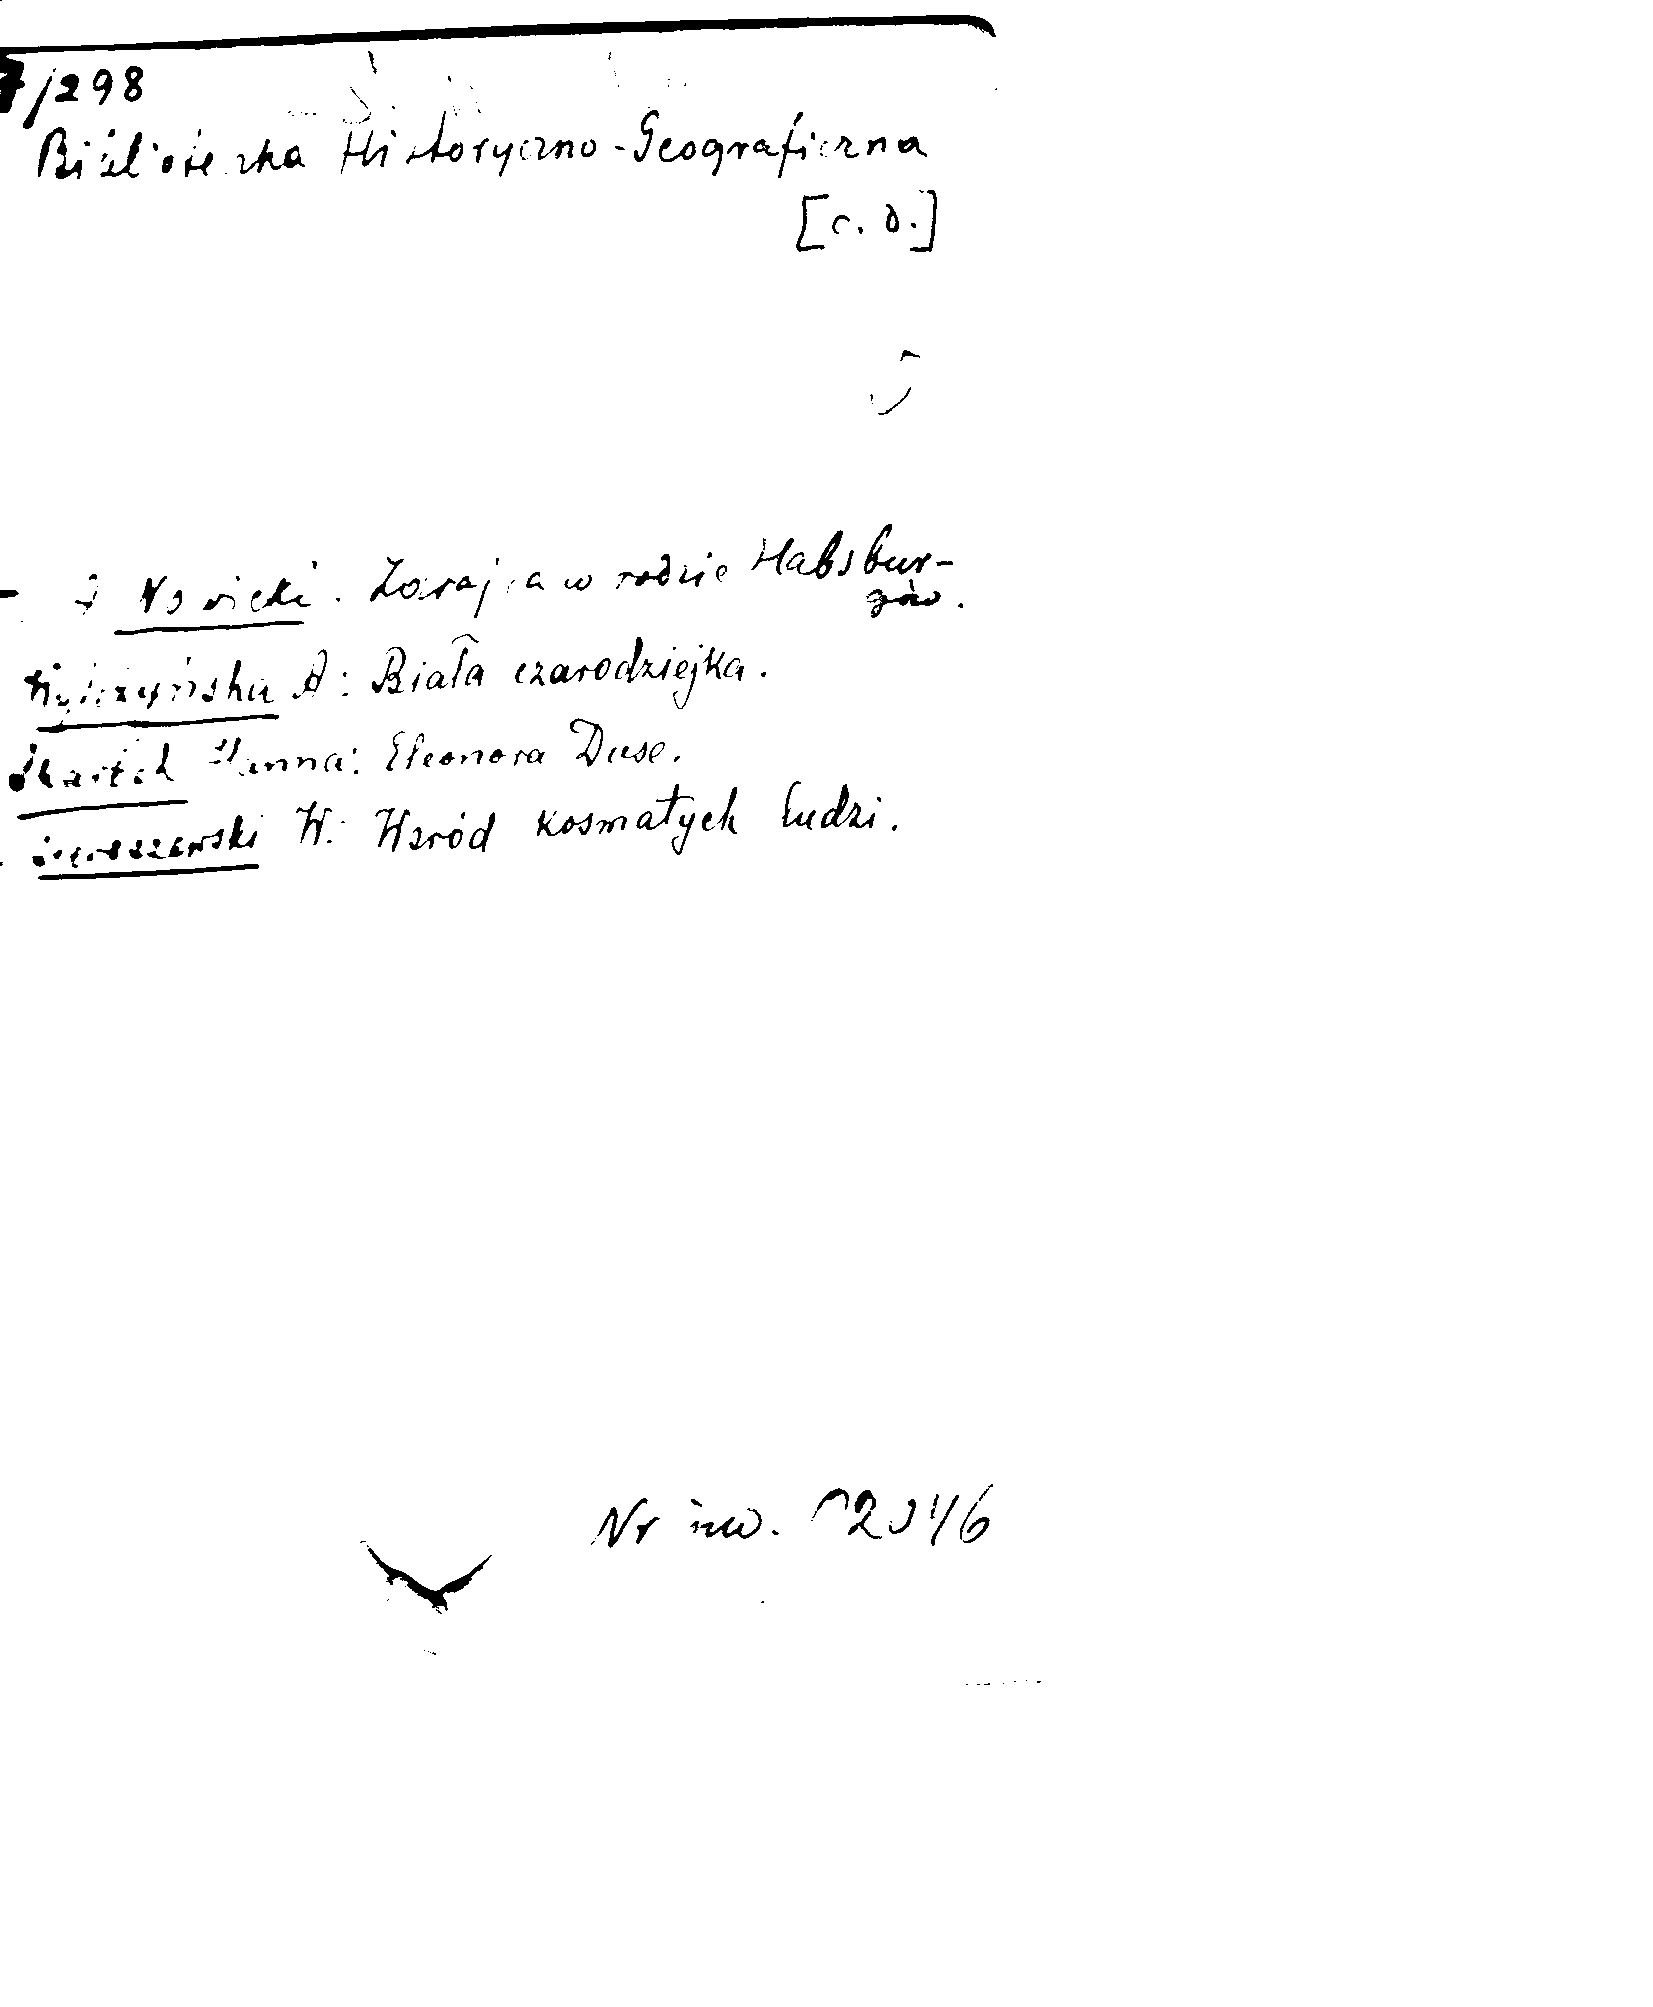 7/298
Biblioteczka Historyczno-Geograficzna
[c. d.]
Nowicki. Zdrajca w rodzie Habsbur-
gów.
A: Biała czarodziejka.
Skarbek Hanna: Eleonora Duse.
Sieroszewski W. Wsród kosmatych ludzi.
Nr inw.